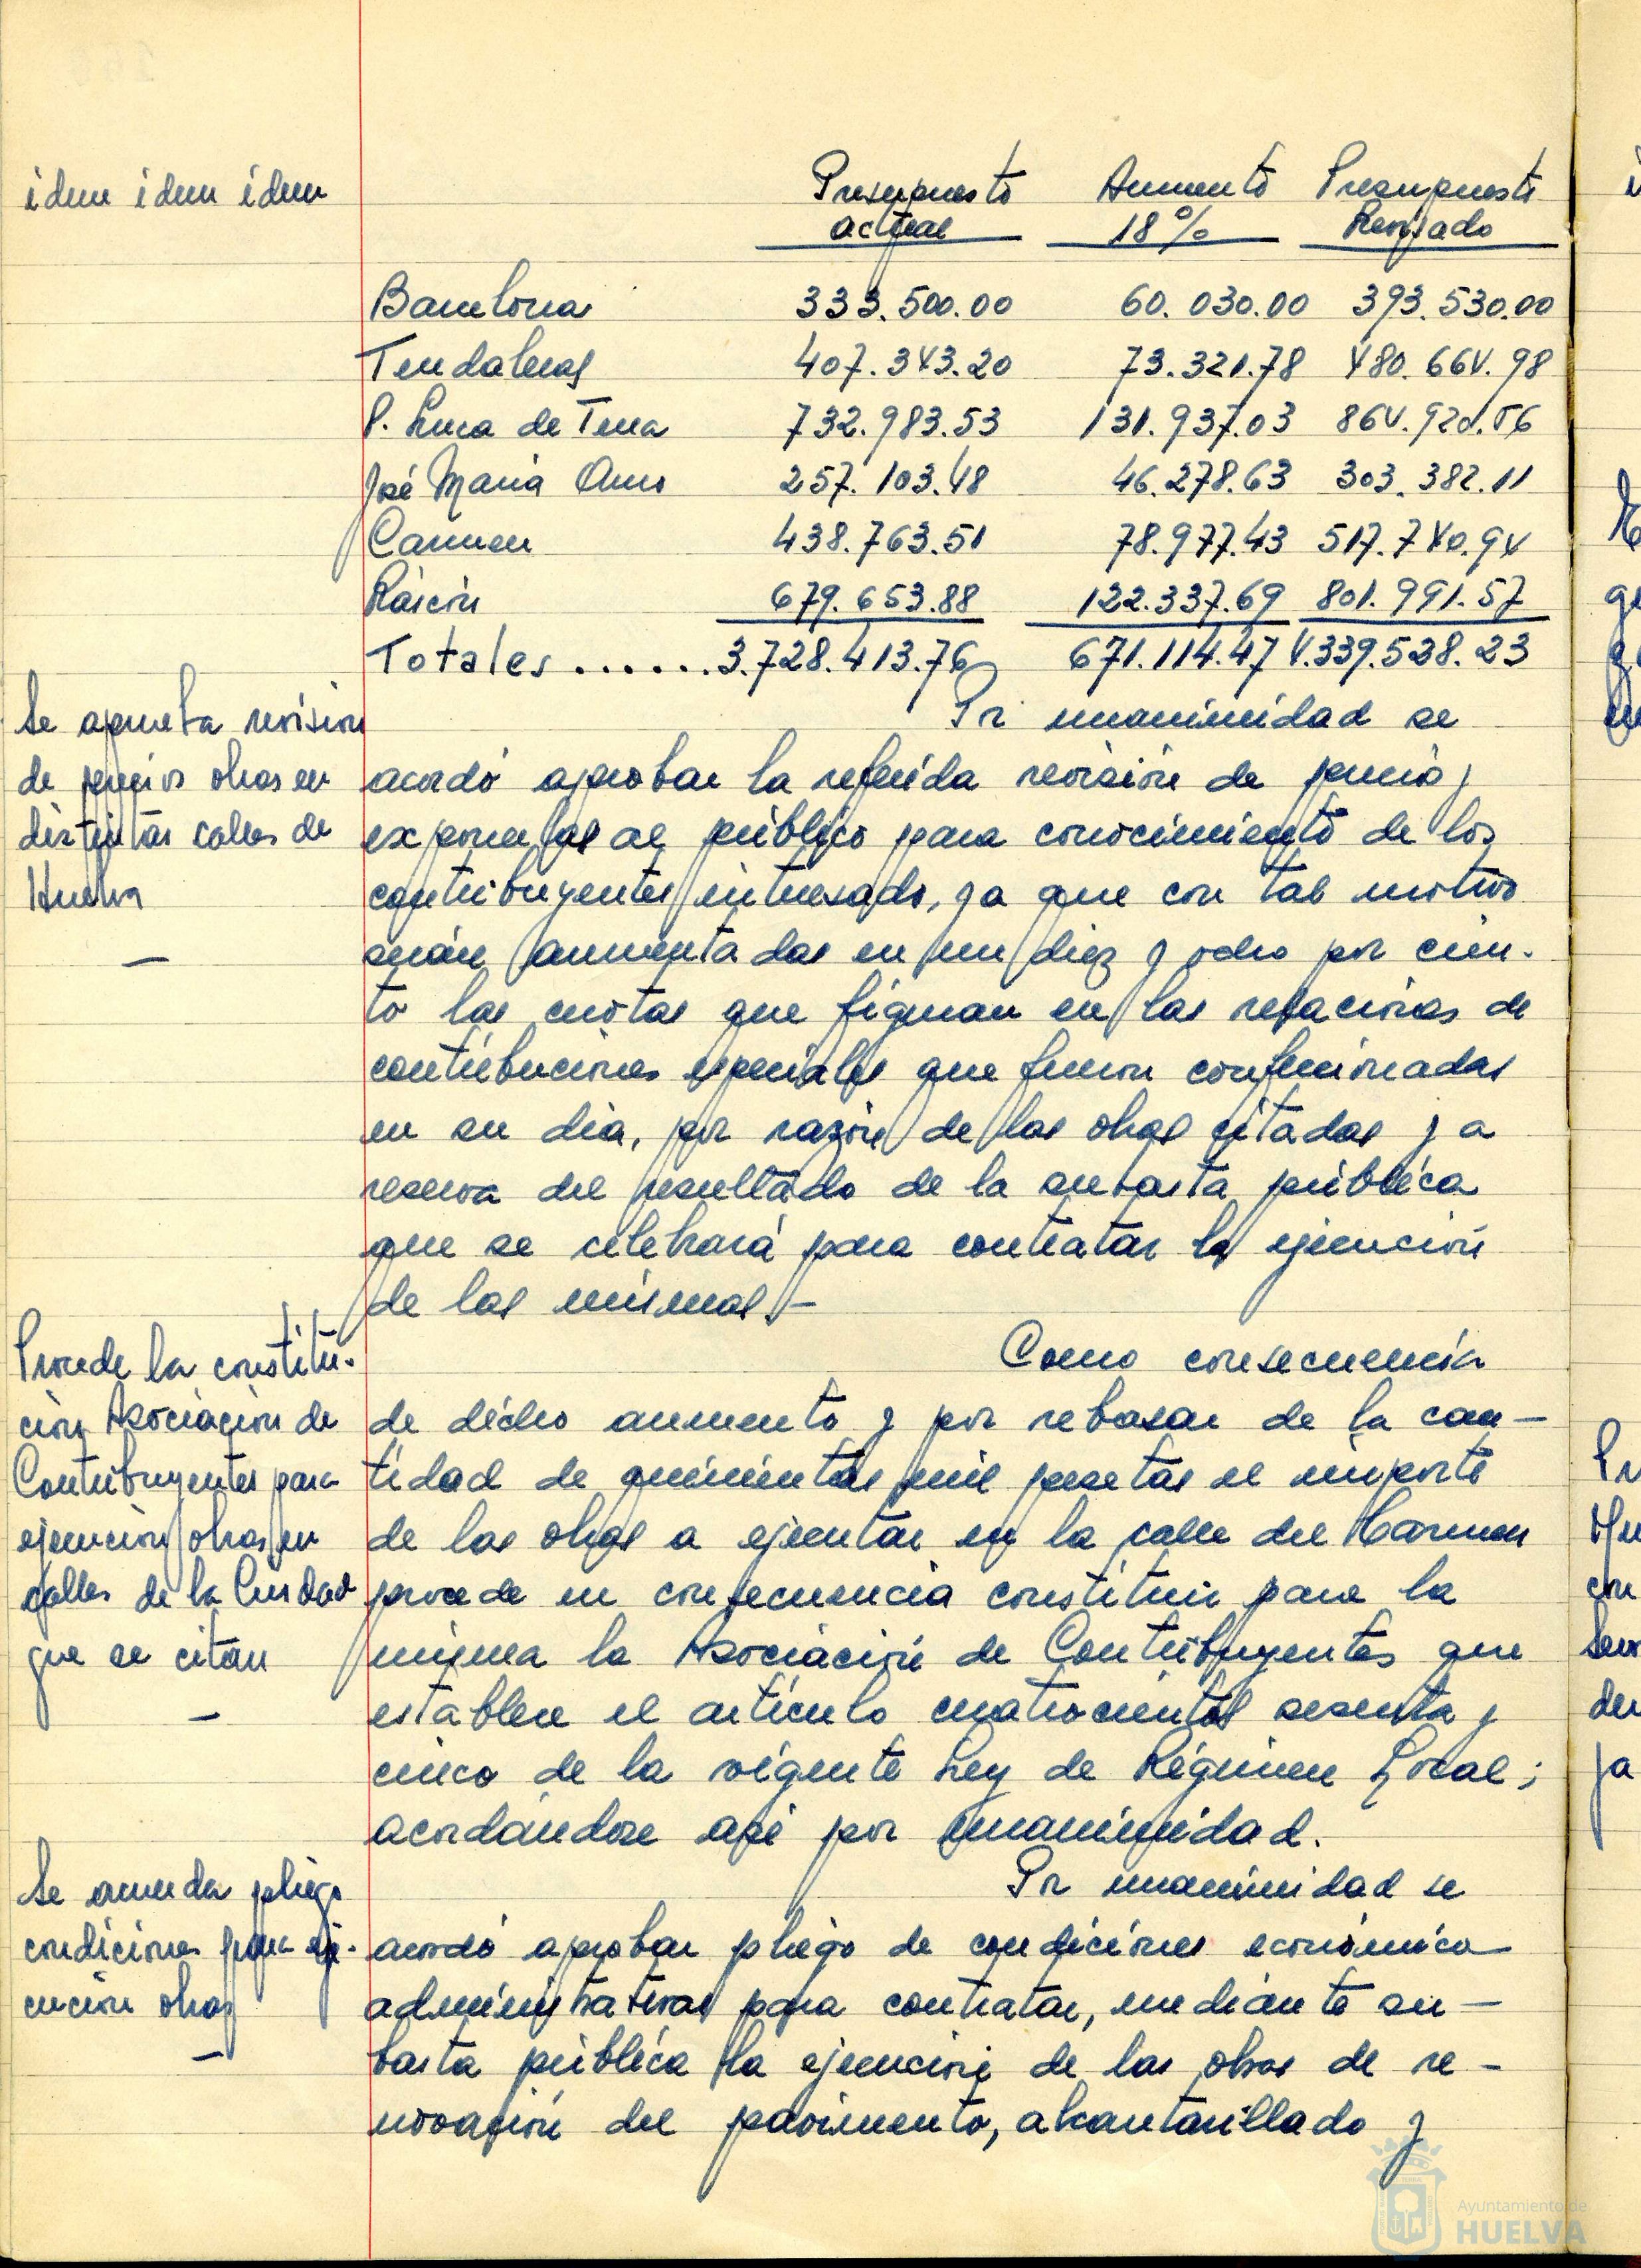 idem idem idem
Presupuesto Aumento Presupuesto
actual 18% Revisado
Barcelona 333.500.00 60.030.00 393.530.00
Tendaleras 407.343.20 73.321.78 480.664.98
P. Luca de Tena 732.983.53 131.937.03 864.920.56
José María Amo 257.103.48 46.278.63 303.382.11
Carmen 438.763.51 78.977.43 517.740.94
Rascón 679.653.88 122.337.69 801.991.57
Totales ...... 3.728.413.76 671.114.47 4.339.528.23
Se aprueba revision
de precios obras en
distintas calles de
Huelva
—
Por unanimidad se
acordó aprobar la referida revisión de precios y
exponerlas al público para conocimiento de los
contribuyentes interesados, ya que con tal motivo
serán aumentadas en un diez y ocho por cien-
to las cuotas que figuran en las relaciones de
contribuciones especiales que fueron confeccionadas
en su dia, por razón de las obras citadas y a
reserva del resultado de la subasta pública
que se celebrará para contratar la ejecución
de las mismas.—
Procede la constitu-
ción Asociacion de
Contribuyentes para
ejecución obras en
calles de la Ciudad
que se citan
—
Como consecuencia
de dicho aumento y por rebasar de la can-
tidad de quinientas mil pesetas el importe
de las obras a ejecutar en la calle del Carmen
procede en consecuencia constituir para la
misma la Asociación de Contribuyentes que
establece el artículo cuatrocientos sesenta y
cinco de la vigente Ley de Régimen Local;
acordándose asi por unanimidad.
Se acuerda pliego
condiciones para eje-
cución obras
—
Por unanimidad se
acordó aprobar pliego de condiciones económico
administrativas para contratar, mediante su-
basta pública la ejecución de las obras de re-
novación del pavimento, alcantarillado y
Ayuntamiento de
HUELVA